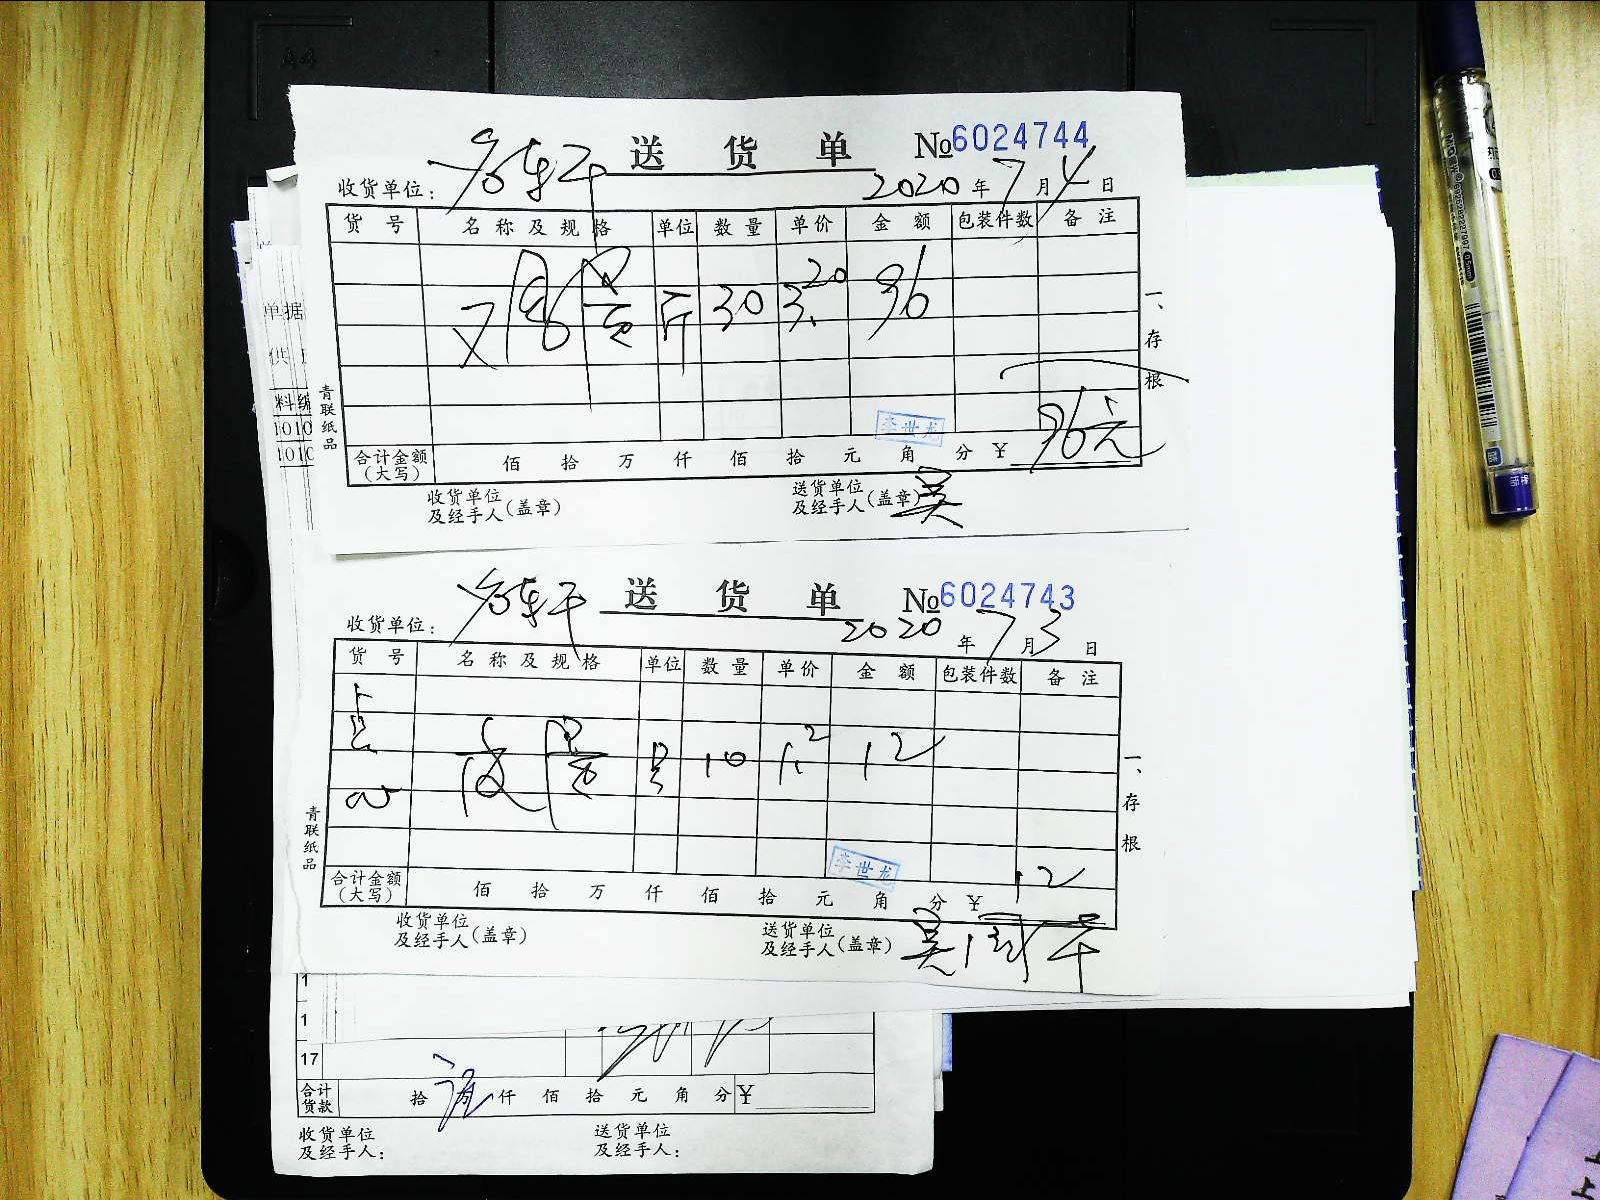 送 货 单 №6024744
收货单位：
2020 年 7 月 4 日
货 号 名 称 及 规 格 单位 数 量 单价 金 额 包装件数 备 注
斤 30 3.20 96
一、存根
青联纸品
李世龙
96元
合计金额（大写） 佰 拾 万 仟 佰 拾 元 角 分 ¥
收货单位及经手人（盖章） 送货单位及经手人（盖章） 吴
送 货 单 №6024743
收货单位：
2020 年 7 月 3 日
货 号 名 称 及 规 格 单位 数 量 单价 金 额 包装件数 备 注
10 1.2 12
一、存根
青联纸品
李世龙
12
合计金额（大写） 佰 拾 万 仟 佰 拾 元 角 分 ¥
收货单位及经手人（盖章） 送货单位及经手人（盖章） 吴
单据
供
料编
1010
1010
1
1
17
合计货款 拾 万 仟 佰 拾 元 角 分 ¥
收货单位及经手人： 送货单位及经手人：